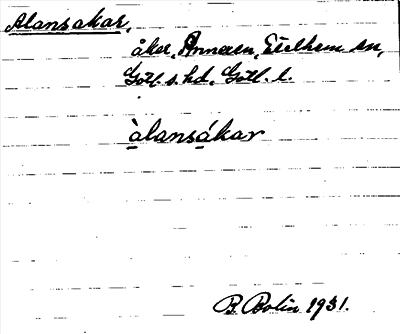 Alansakar,
åker, Annexen, Etelhem sn,
Gotl. s. hd, Gotl. l.
àlansákar
B. Bolin 1931.